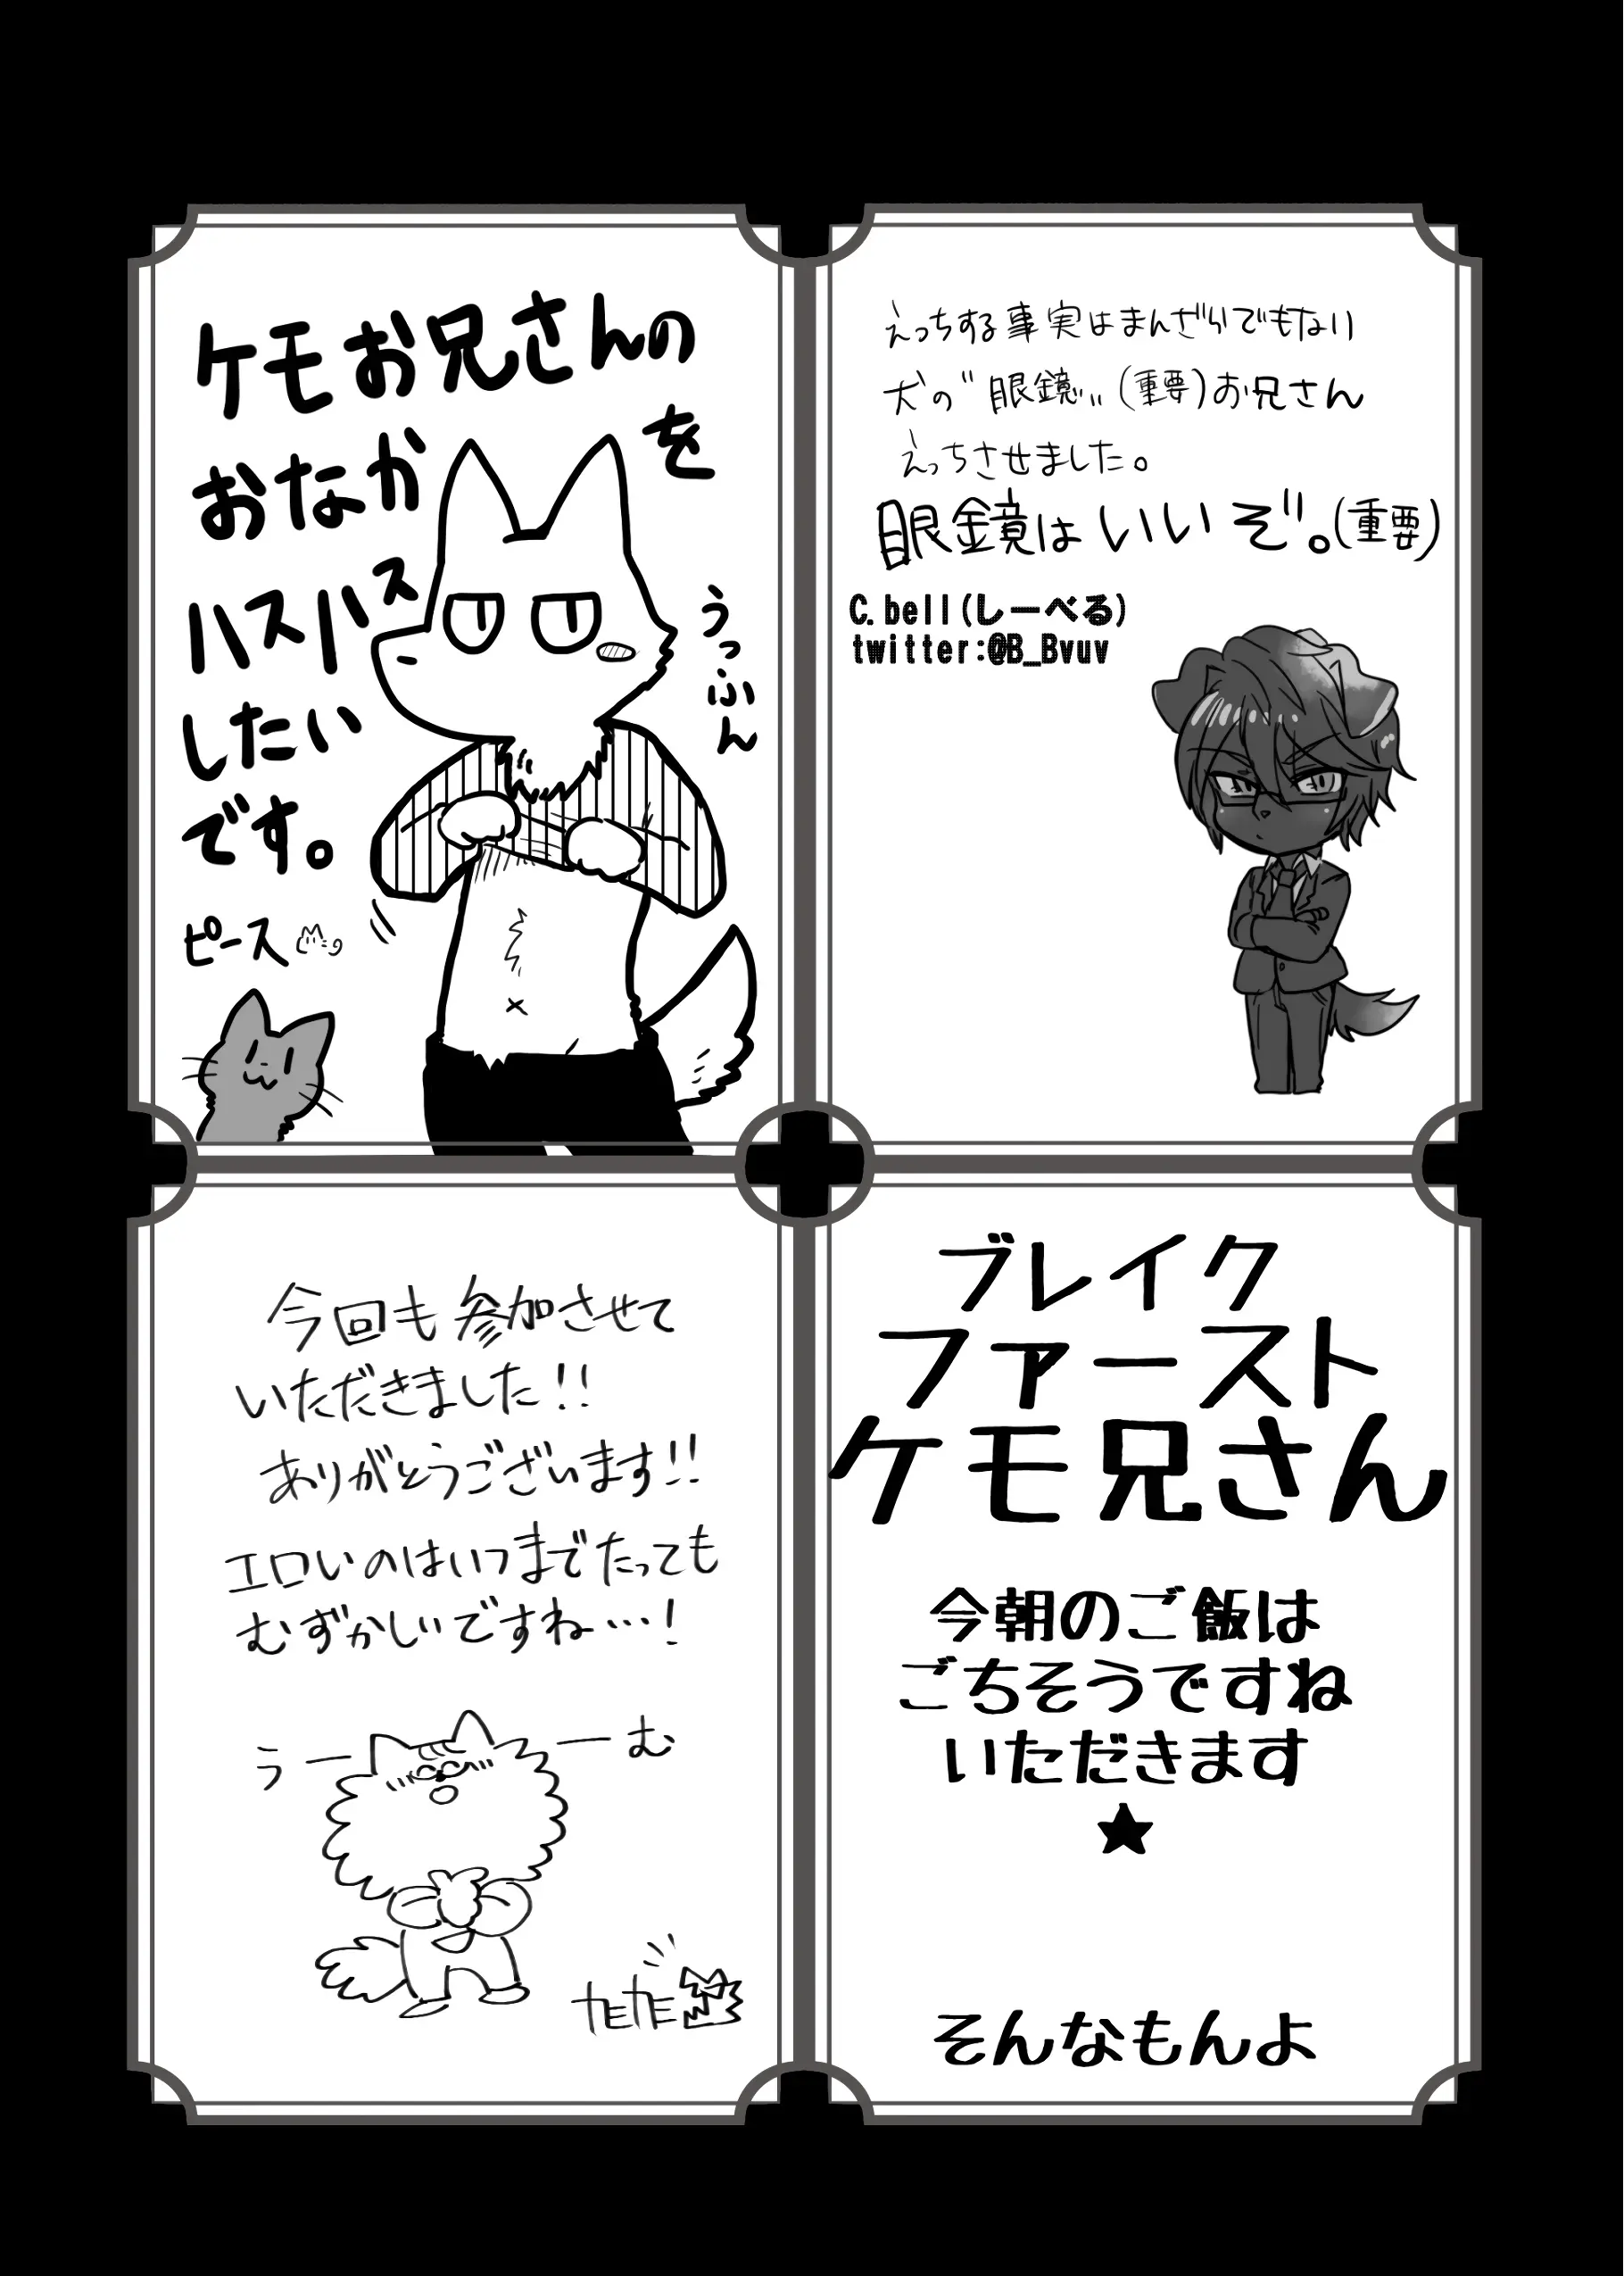 ケモお兄さんの
おなかを
ハスハス
したい
です。
うっふん
ピース
えっちする事実はまんざらでもない
犬の"眼鏡"(重要)お兄さん
えっちさせました。
眼鏡はいいぞ。(重要)
C.bell(しーべる)
twitter:@B_Bvuv
今回も参加させて
いただきました!!
ありがとうございます!!
エロいのはいつまでたっても
むずかしいですね…!
うーーむ
ブレイク
ファースト
ケモ兄さん
今朝のご飯は
ごちそうですね
いただきます
★
そんなもんよ